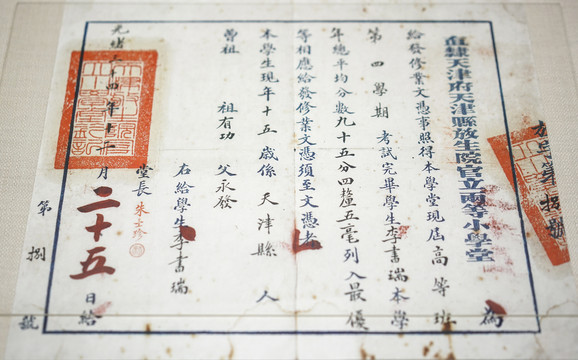 直隸天津府天津縣放生院官立兩等小學堂
為
給發修業文憑事照得本學堂現屆高等班
第四學期考試完畢學生李書瑞本學
年總平均分數九十五分四釐五毫列入最優
等相應給發修業文憑須至文憑者
本學生現年十五歲係天津縣人
曾祖 祖有功 父永發
右給學生李書瑞
堂長朱士珍
光緒三十四年十二月二十五日給
第捌號